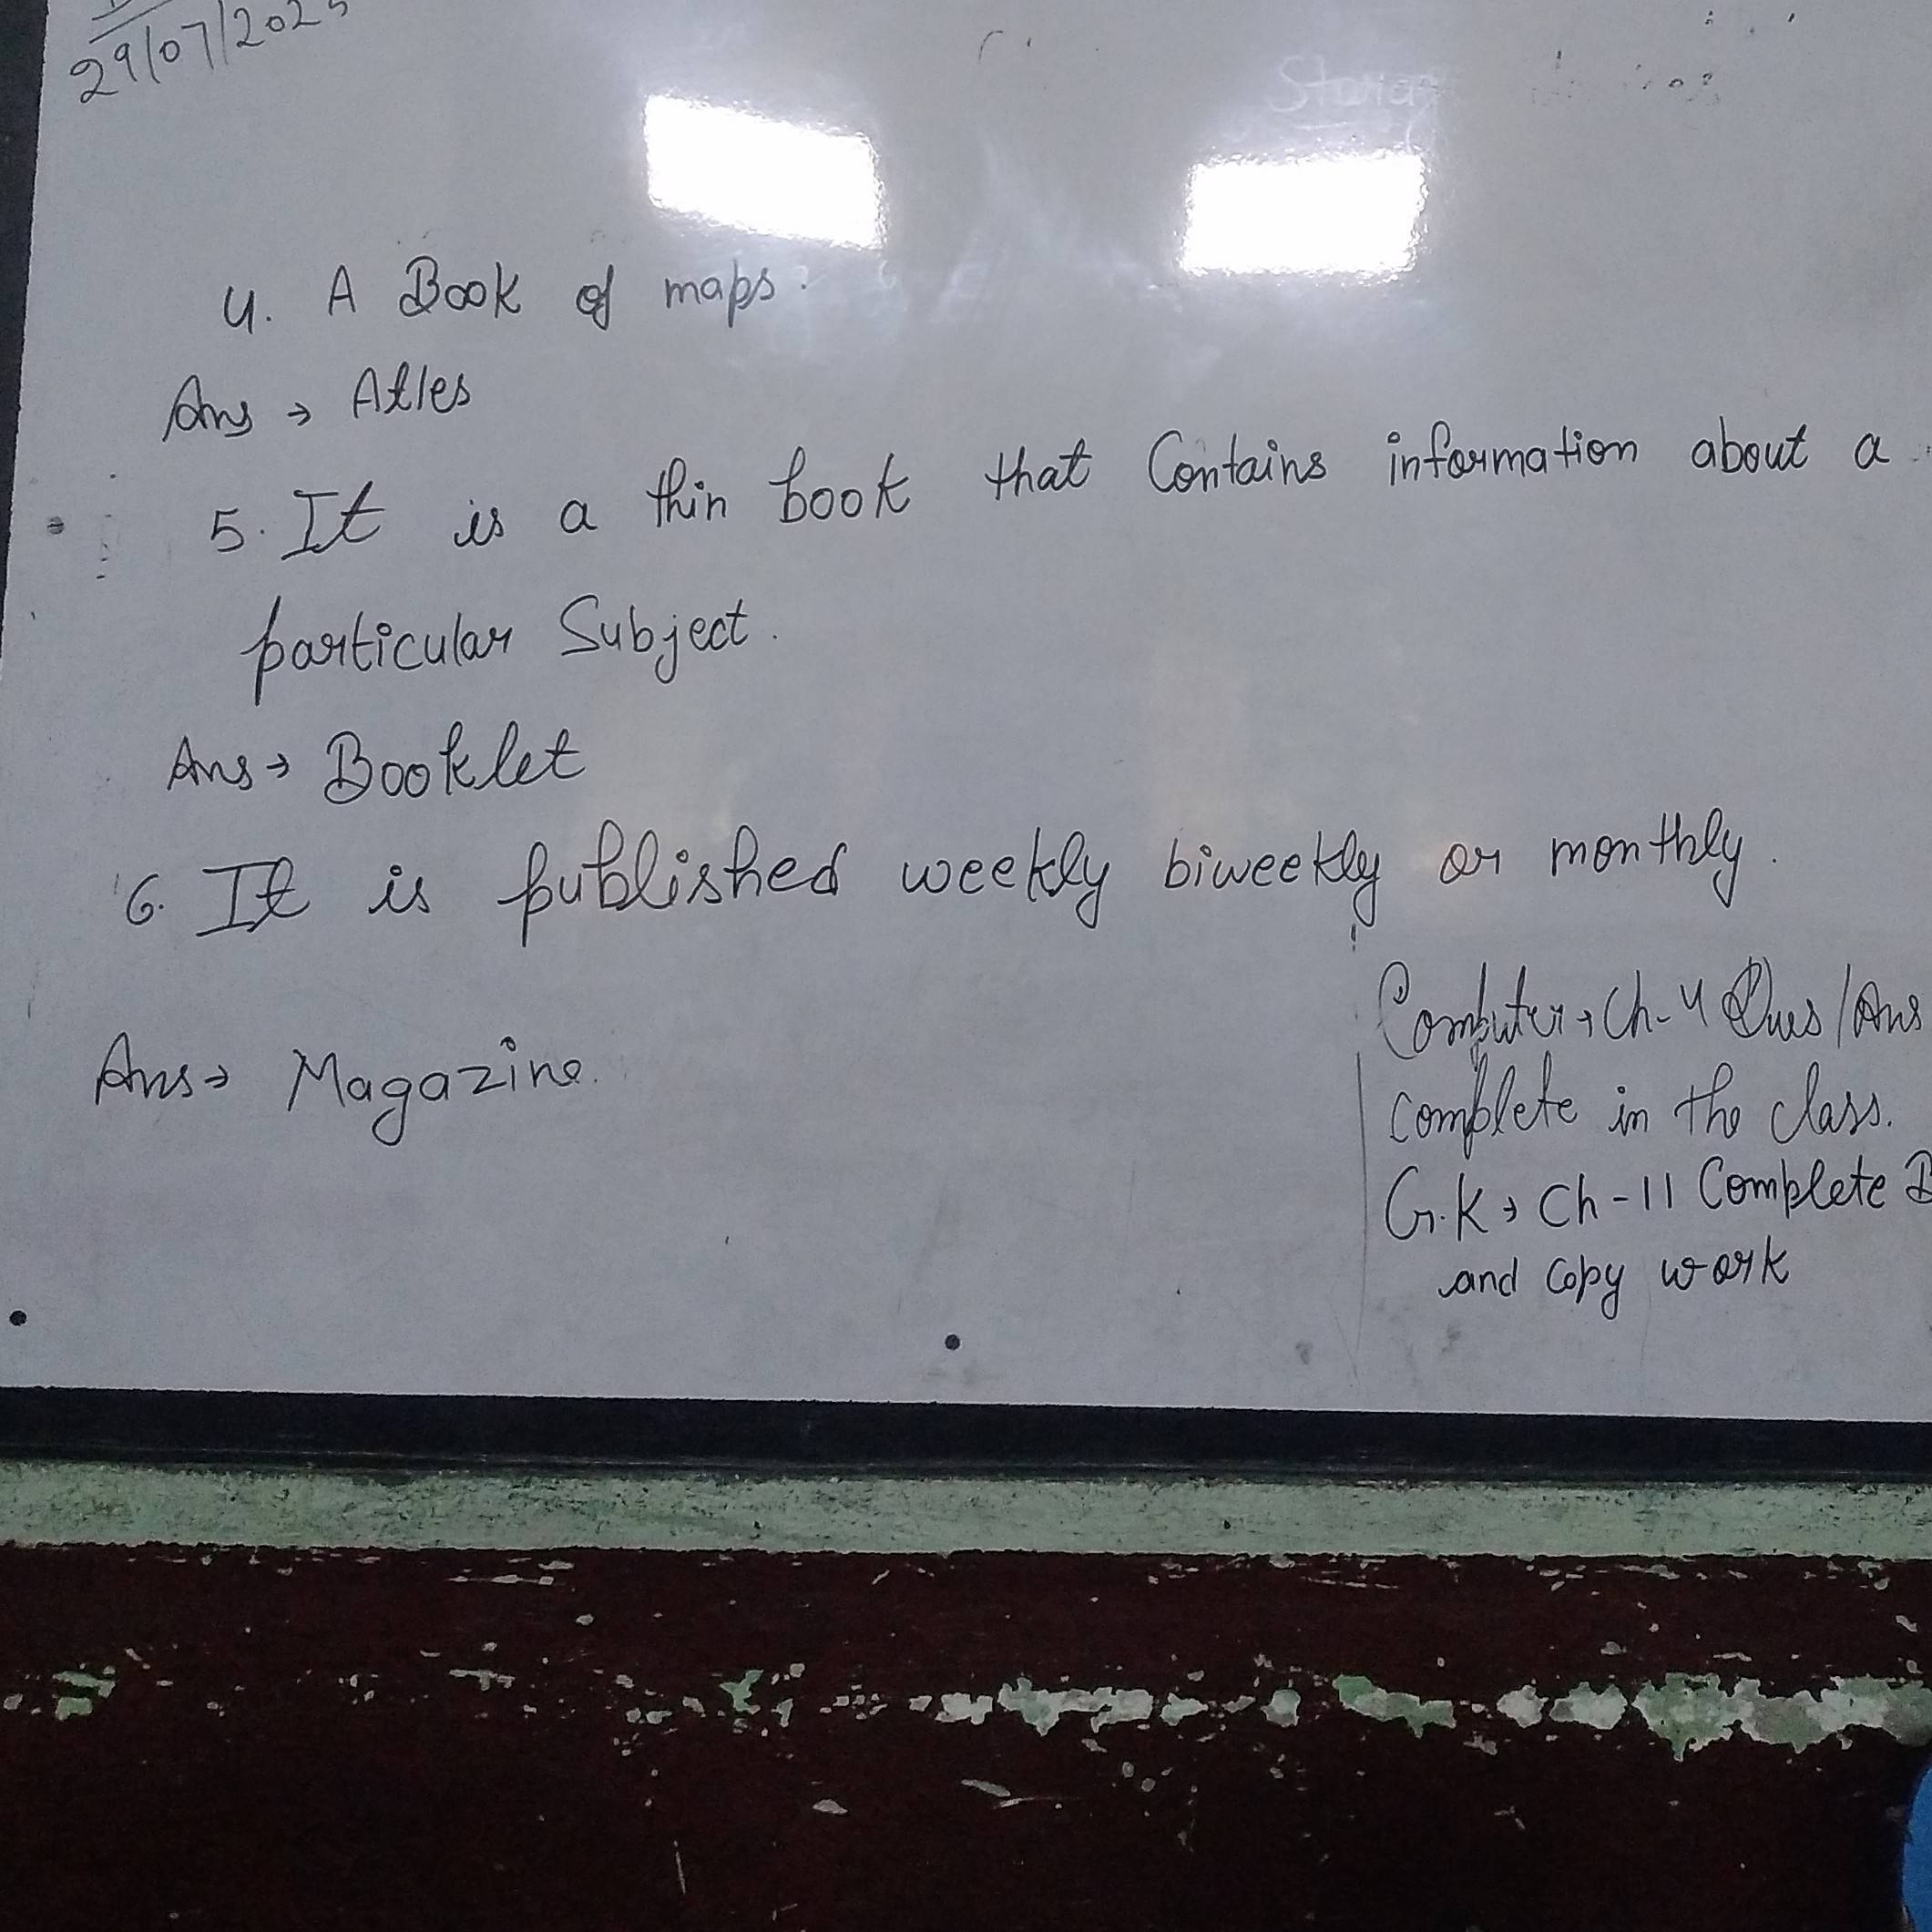 29/07/2025
4. A Book of maps.
Ans → Atles
5. It is a thin book that Contains information about a
particular Subject.
Ans → Booklet
6. It is published weekly biweekly or monthly.
Ans → Magazine.
Computer → Ch-4 Ques/Ans
complete in the class.
G.K → Ch-11 Complete
and Copy work